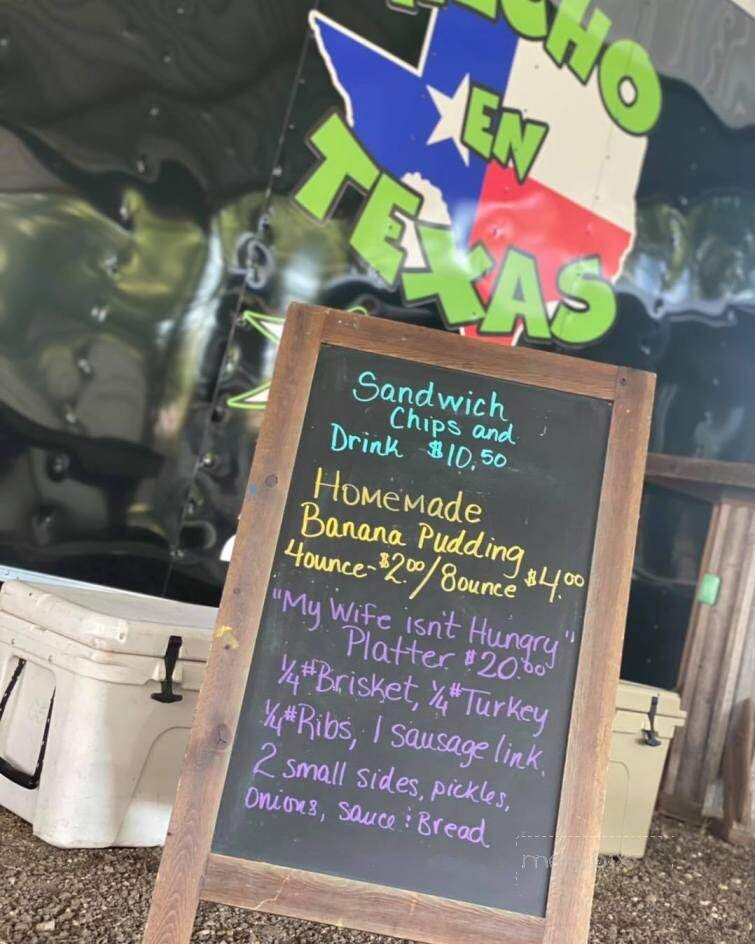 EN
TEXAS
Sandwich
Chips and
Drink $10.50
Homemade
Banana Pudding
4ounce-$2.00/8ounce $4.00
"My Wife isn't Hungry"
Platter $20.00
1/4#Brisket, 1/4#Turkey
1/4#Ribs, 1 sausage link,
2 small sides, pickles,
onions, sauce & Bread